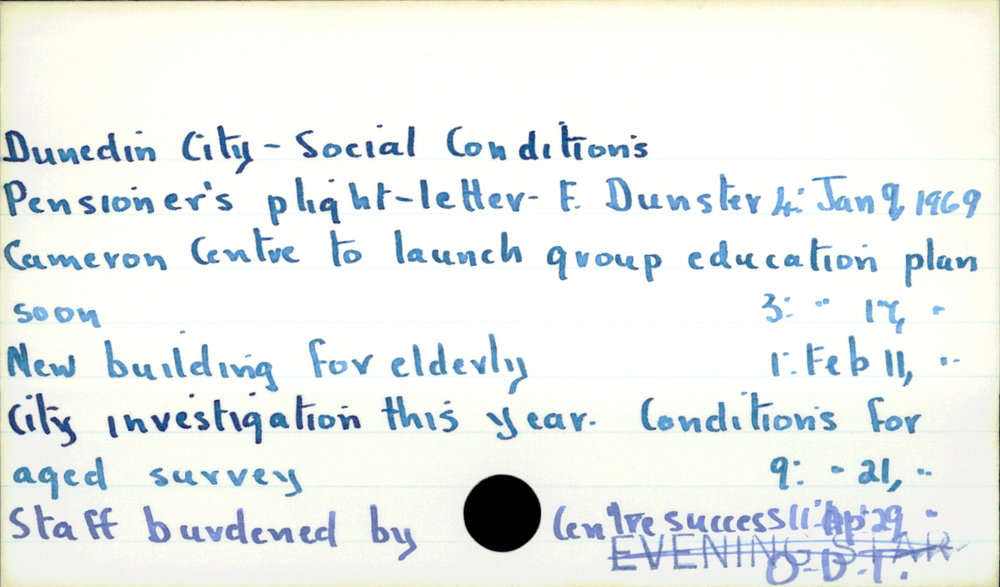 Dunedin City - Social Conditions
Pensioner's plight-letter- F. Dunster 4: Jan 9, 1969
Cameron Centre to launch group education plan
soon 3: " 17, "
New building for elderly 1: Feb 11, "
City investigation this year. Conditions for
aged survey 9: " 21, "
Staff burdened by Centre success 11: Ap 29 "
EVENING STAR
O.D.T.